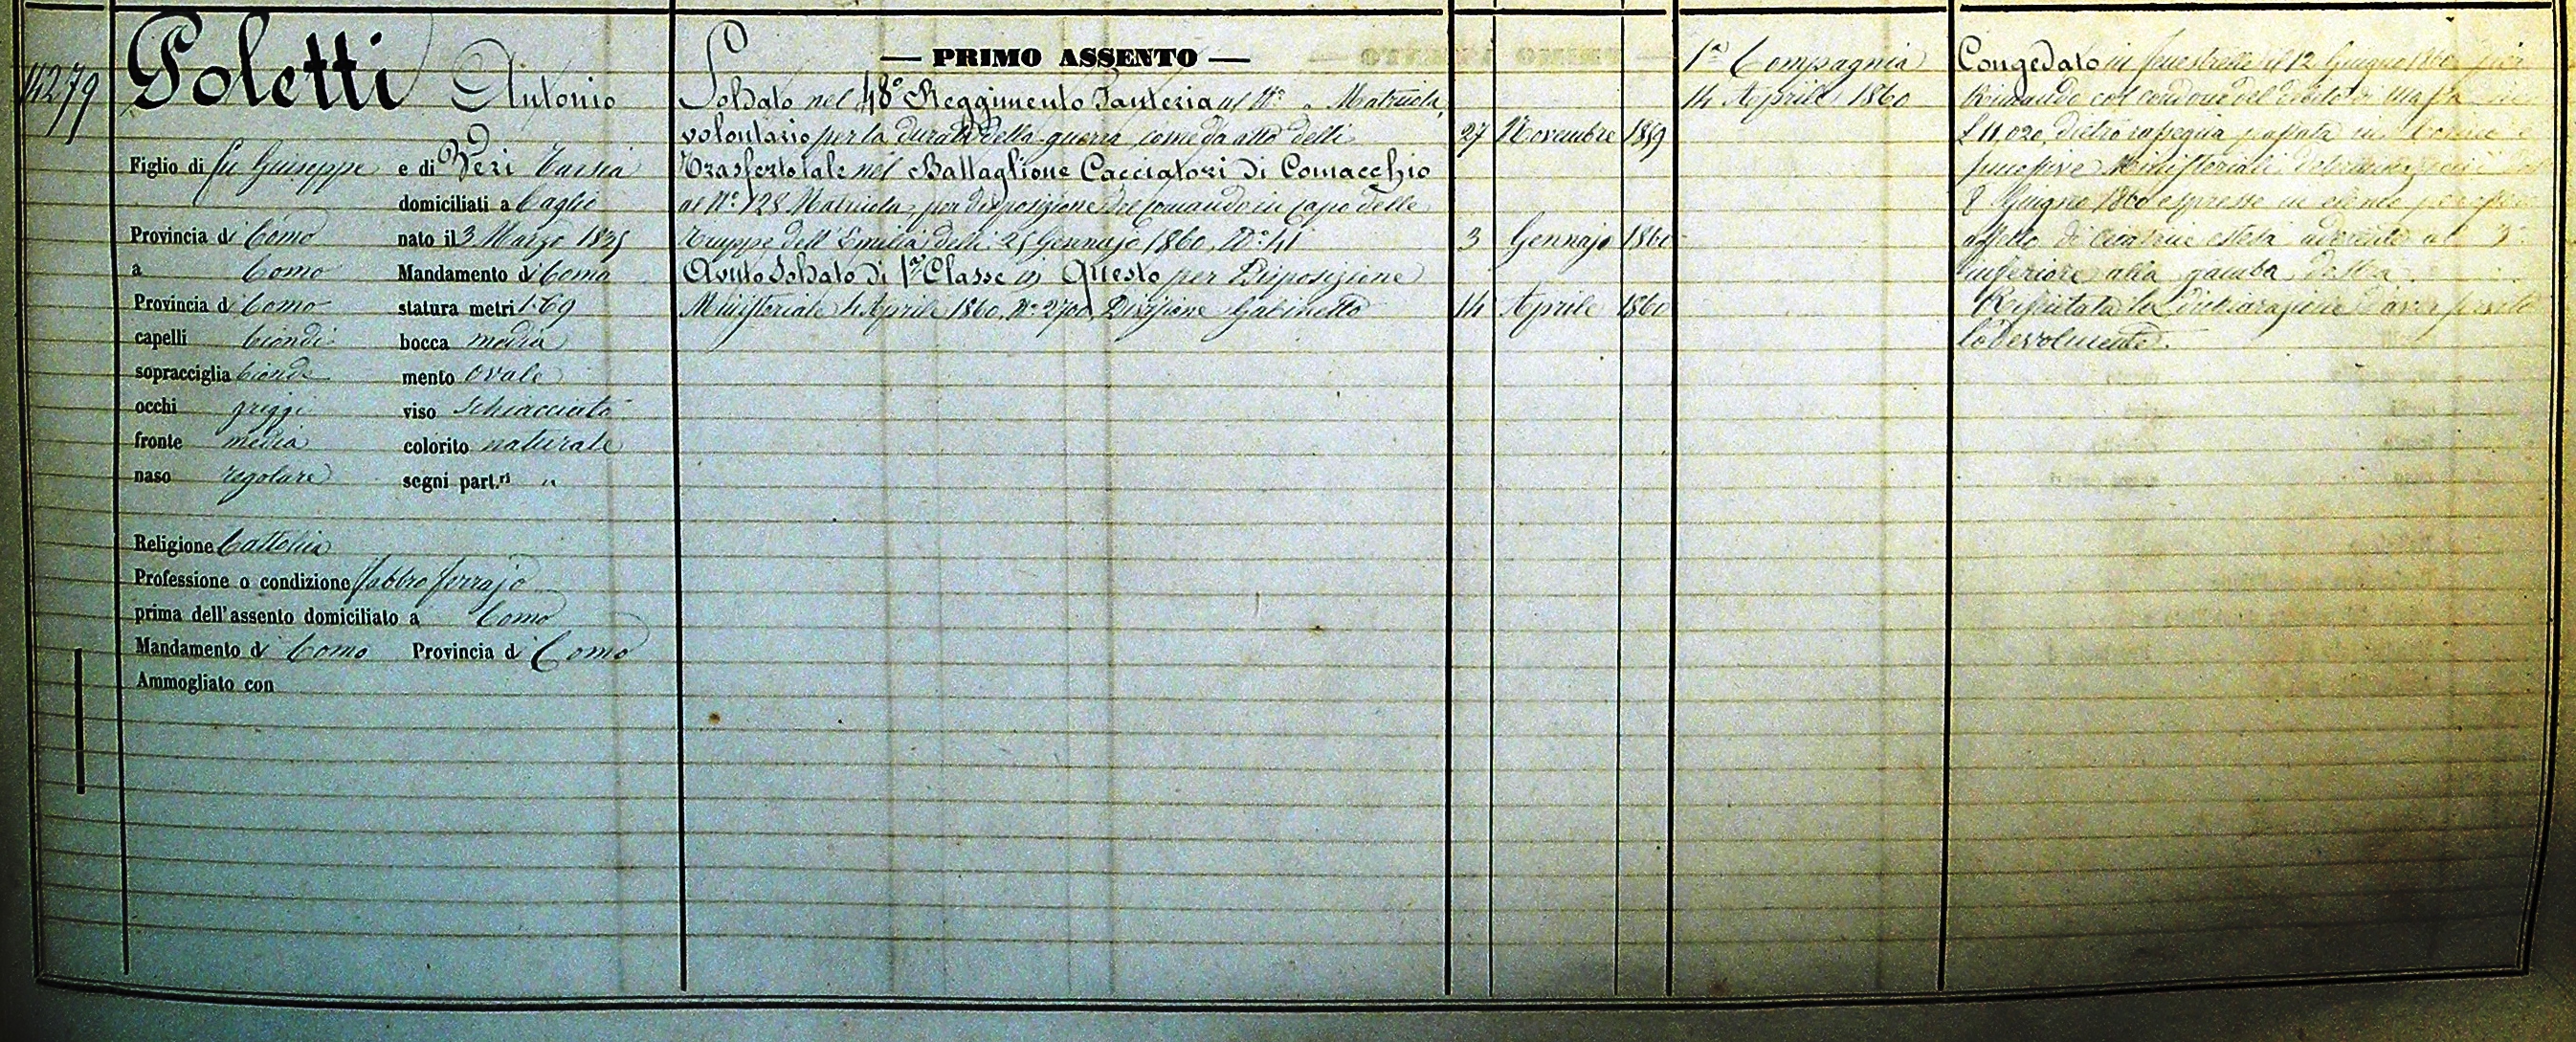 14279
Poletti Antonio
Figlio di fu Giuseppe e di Veri
domiciliati a Caglio
Provincia di Como nato il 3 Marzo 1825
a Como Mandamento di Como
Provincia di Como statura metri 1.69
capelli biondi bocca media
sopracciglia bionde mento ovale
occhi griggi viso schiacciato
fronte media colorito naturale
naso regolare segni part.ri "
Religione Cattolica
Professione o condizione fabbro ferrajo
prima dell'assento domiciliato a Como
Mandamento di Como Provincia di Como
Ammogliato con
— PRIMO ASSENTO —
Soldato nel 48° Reggimento Fanteria al N° " Matricola,
volontario per la durata della guerra, come da atto delli 27 Novembre 1859
Trasferto tale nel Battaglione Cacciatori di Comacchio
al N° 128 Matricola, per disposizione del Comando in Capo delle
Truppe dell'Emilia delli 25 Gennajo 1860, N° 41 3 Gennajo 1860
Avuto Soldato di 1a Classe in Questo per Disposizione
Ministeriale 4 Aprile 1860, N° 2700, Divisione Gabinetto 14 Aprile 1860
1a Compagnia
14 Aprile 1860
Congedato in Fenestrelle il 12 Giugno 1860
Rimando col condono del debito di massa
£ 11,020, dietro rassegna passata in
successive Ministeriali
8 Giugno 1860 espresse in elenco
affetto di cicatrice estesa aderente al 3°
inferiore alla gamba destra
Rilasciata la Dichiarazione d'aver servito
lodevolmente.